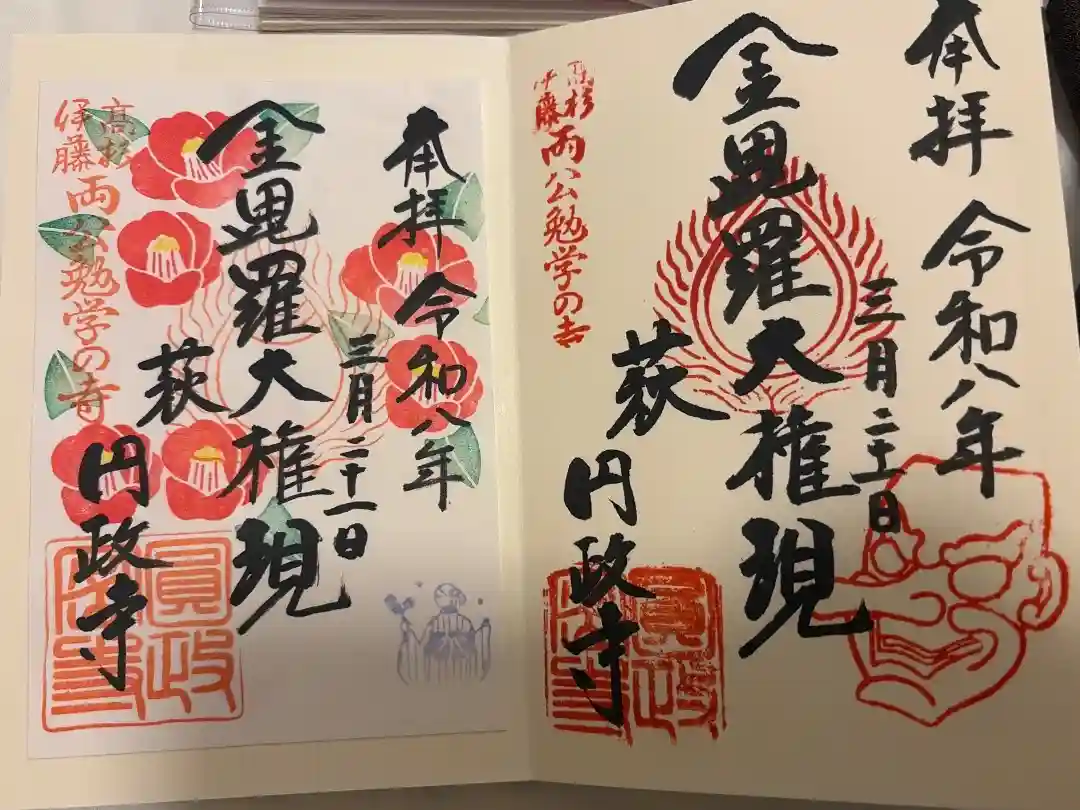 奉拝 令和八年
三月二十一日
金毘羅大権現
萩 円政寺
高杉
伊藤
両公勉学の寺
圓政
奉拝 令和八年
三月二十一日
金毘羅大権現
萩 円政寺
高杉
伊藤
両公勉学の寺
圓政